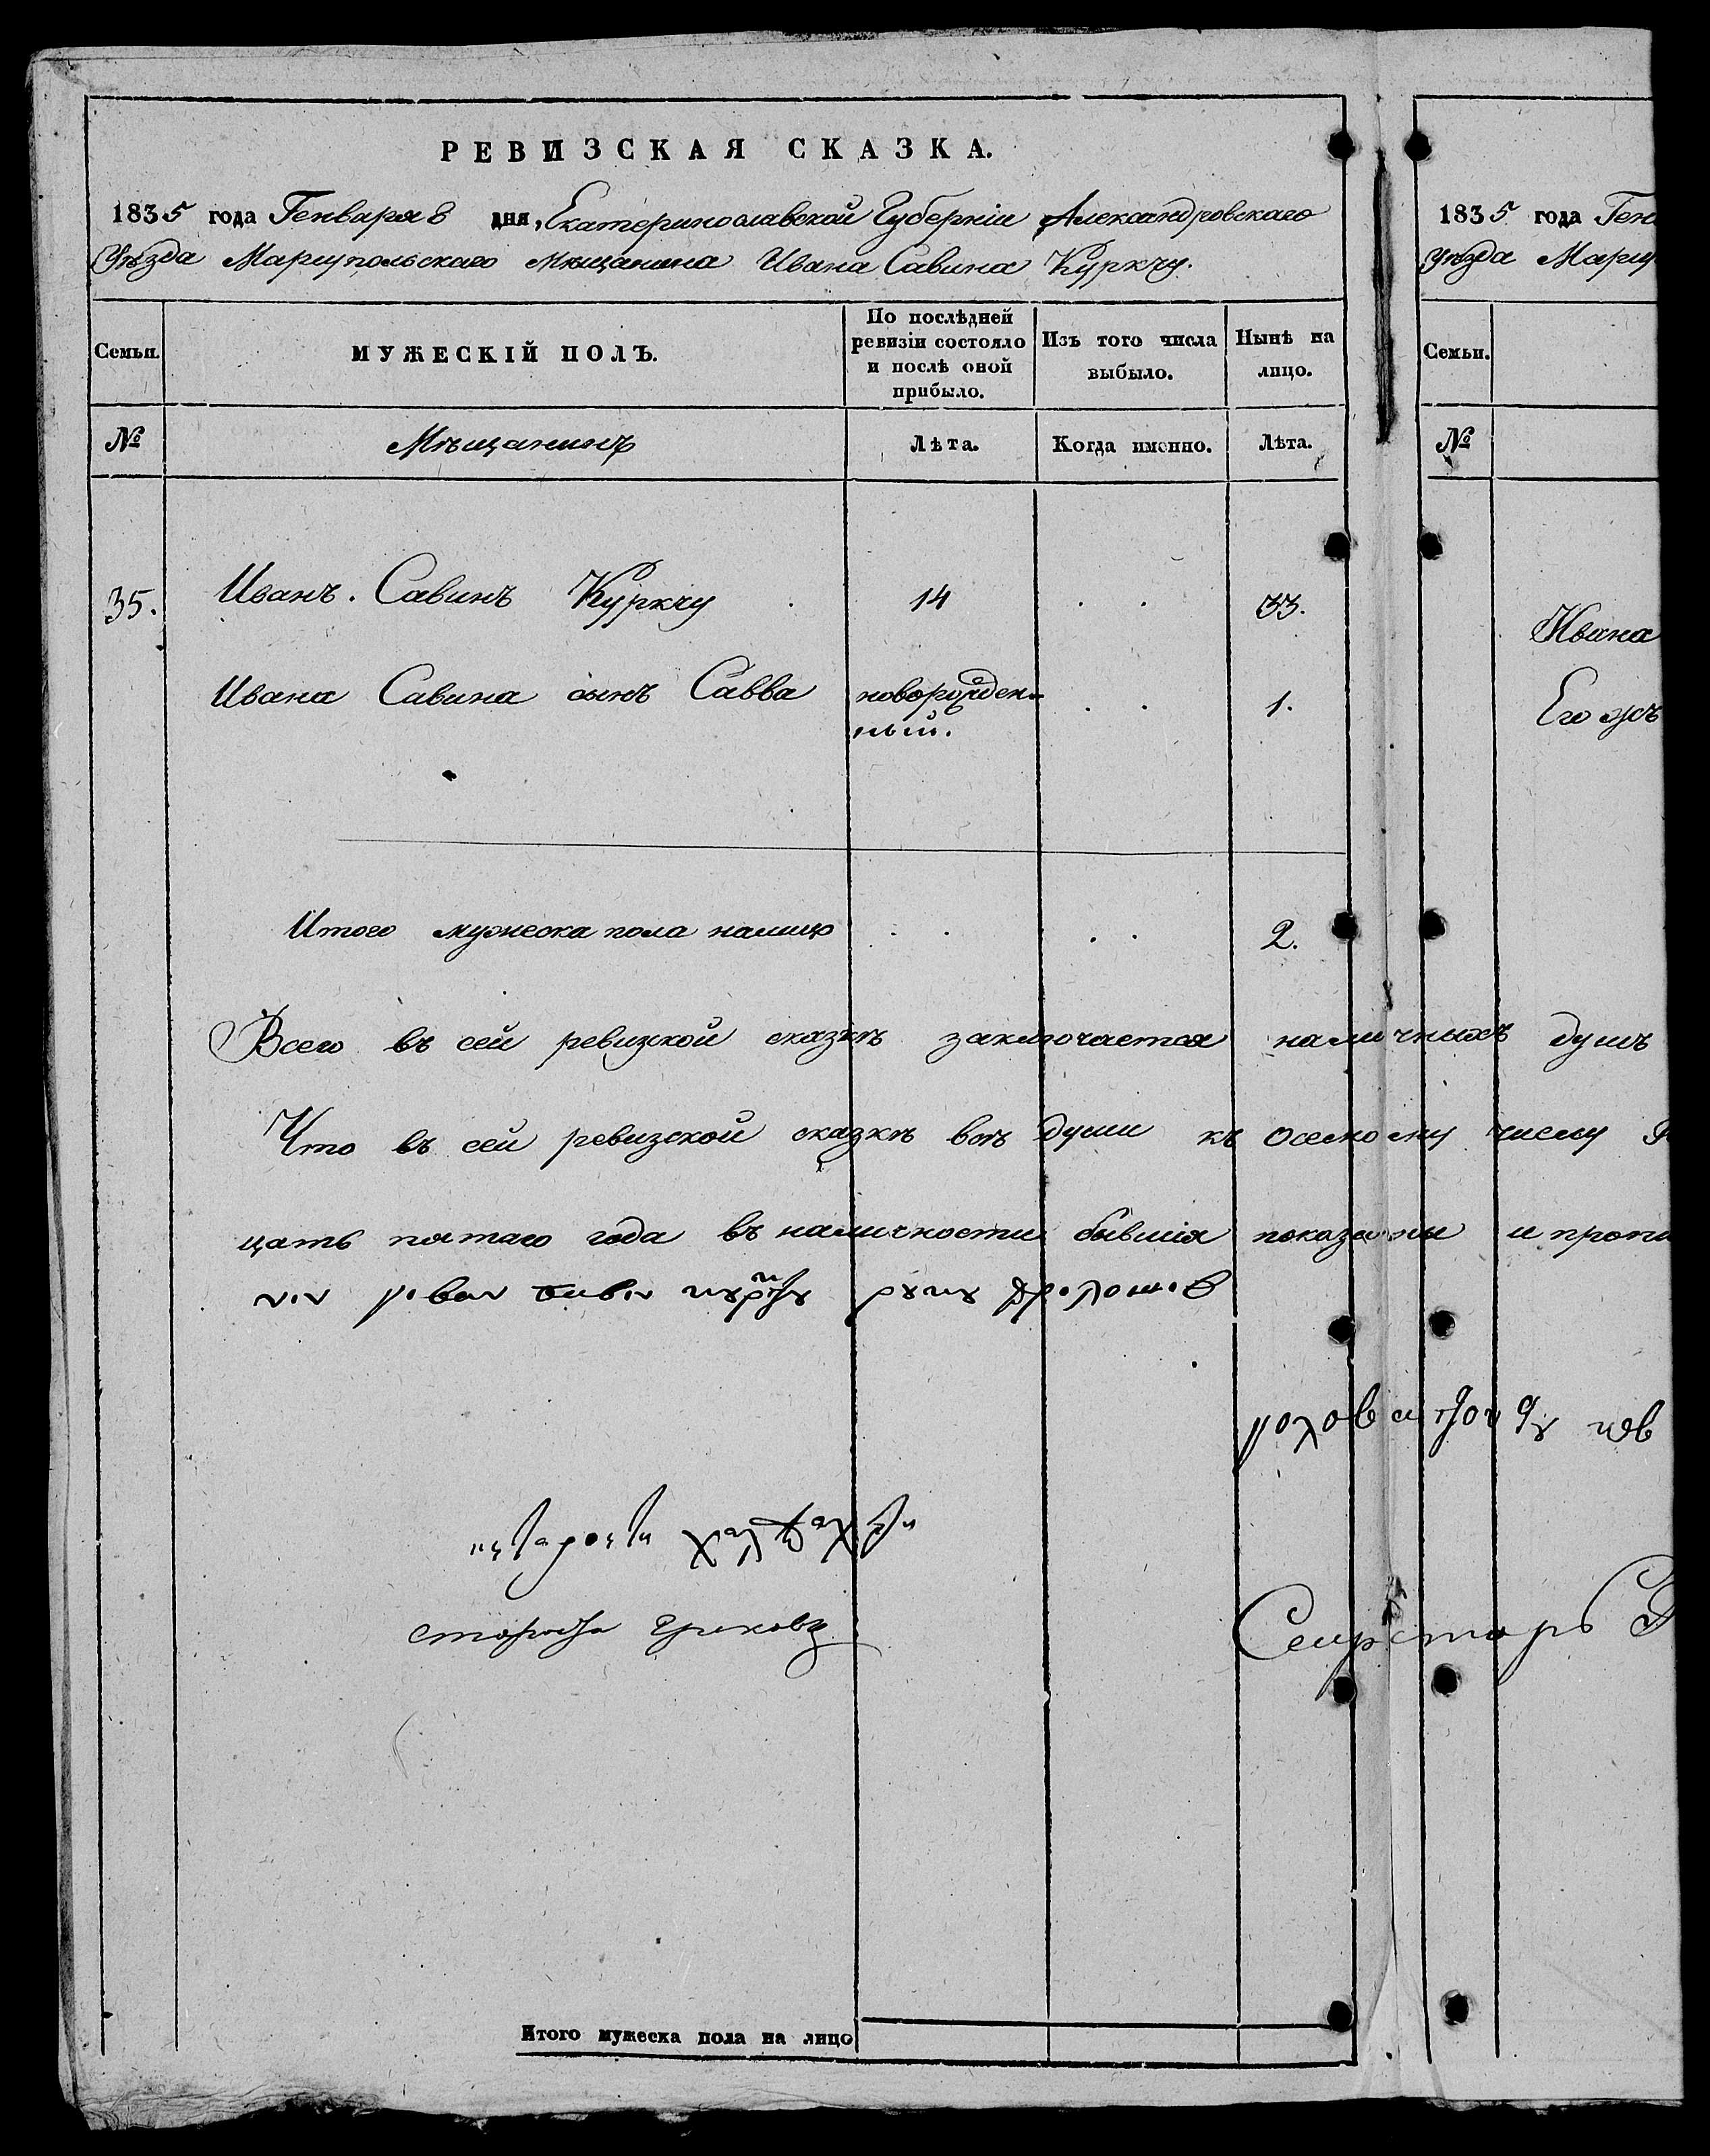 РЕВИЗСКАЯ СКАЗКА.
1835 года Генваря 8 дня, Екатеринославской Губерніи Александровскаго
Уѣзда Мариупольскаго Мѣщанина Ивана Савина Куркчу.
Семьи.
МУЖЕСКІЙ ПОЛЪ.
По послѣдней
ревизіи состояло
и послѣ оной
прибыло.
Изъ того числа
выбыло.
Нынѣ на
лицо.
№
Мѣщанинъ
Лѣта.
Когда именно.
Лѣта.
35.
Иванъ. Савинъ Куркчу
14
33.
Ивана Савина сынъ Савва
новорожден-
ный.
1.
Итого мужеска пола налицо
2.
Всего въ сей ревизкой сказкѣ заключается наличныхъ душъ
Что въ сей ревизской сказкѣ всѣ души къ осемому числу
цать пятаго года въ наличности бывшія показаны и
староста
Секретарь
Итого мужеска пола на лицо
1835 года Ген
Уѣзда Мариу
Семьи.
№
Ивана
Его жъ